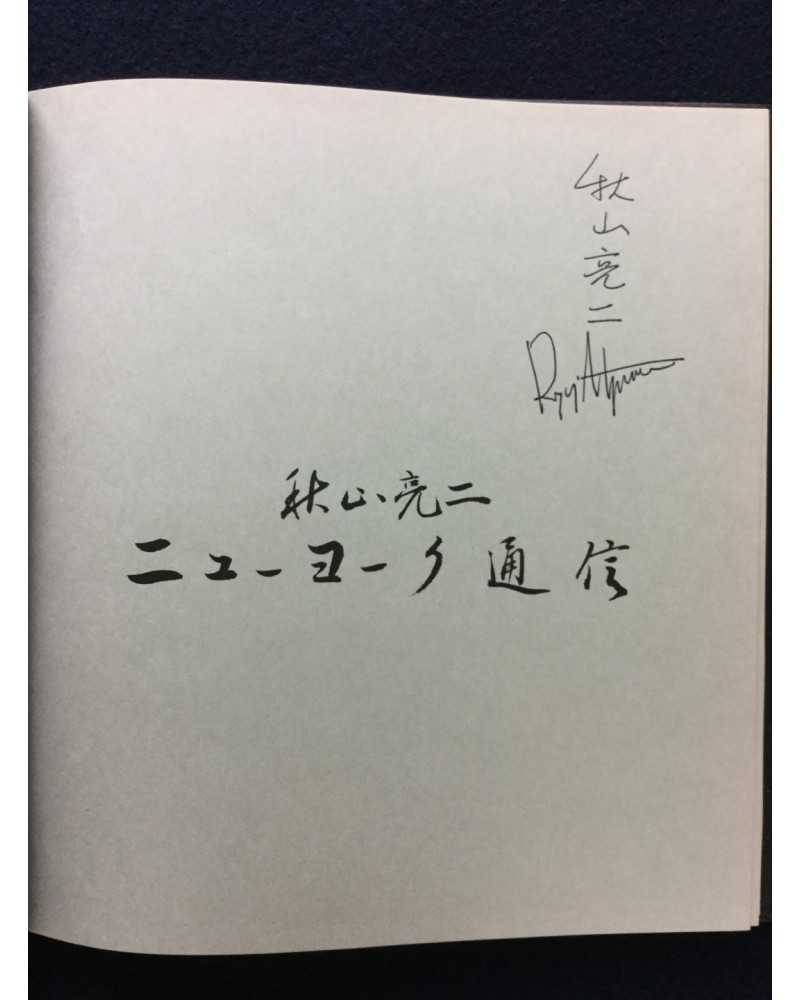 秋山亮二
Ryoji Akiyama
秋山亮二
ニューヨーク通信